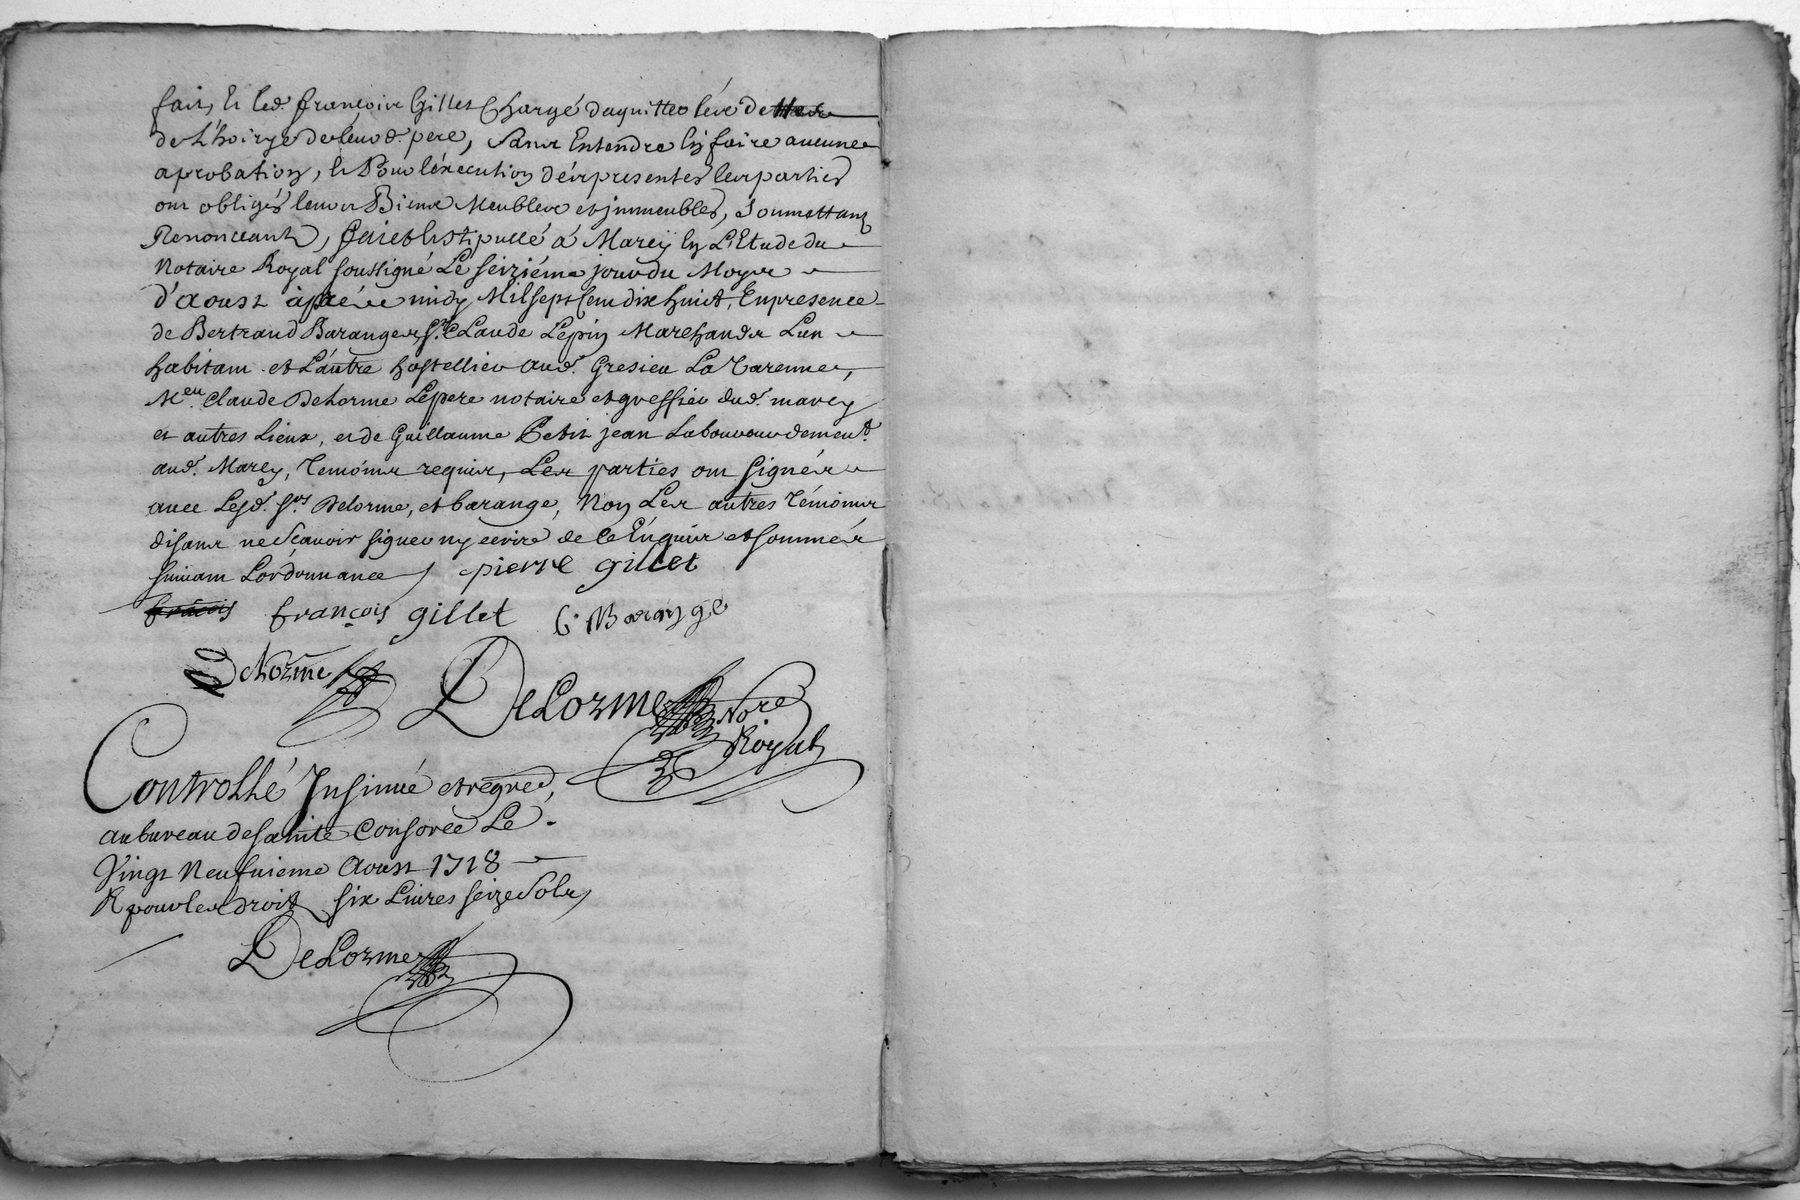 fait, et led. françois Gillet Chargé daquitter lesd. dettes
de L'hoirye de leurd. pere, sans Entendre En faire aucune
aprobation, et Pour lexecution desd. presentes les parties
ont obligés leurs Biens Meubles et jmmeubles, soumettant
Renonceant, fait et stipullé á Marcy En L'Etude du
Notaire Royal soussigné Le seiziéme jour du Moys
d'aoust àprés midy Mil sept Cent dix huict, En presence
de Bertrand Barange, sr. Claude Lépin Marchands Lun
habitant et L'autre hostellier aud. Gresieu La Varenne,
Me. Claude Delorme Lépere notaire et greffier dud. marcy
et autres Lieux, et de Guillaume Petit jean Laboureur demeut.
aud. Marcy, Temoins requis, Les parties ont signés
avec Lesd. srs. Delorme, et barange, Non Les autres Témoins
disant ne sçavoir signer ny ecrire de ce Enquis et sommés
suivant Lordonnance pierre gillet
francois françois gillet B. Barange
DeLorme DeLorme Nore
Royal
Controllé Insinué et regré,
au bureau de sainte Consorce Le
Vingt Neufuieme Aoust 1718
R pour les droits six Livres seize Sols
DeLorme